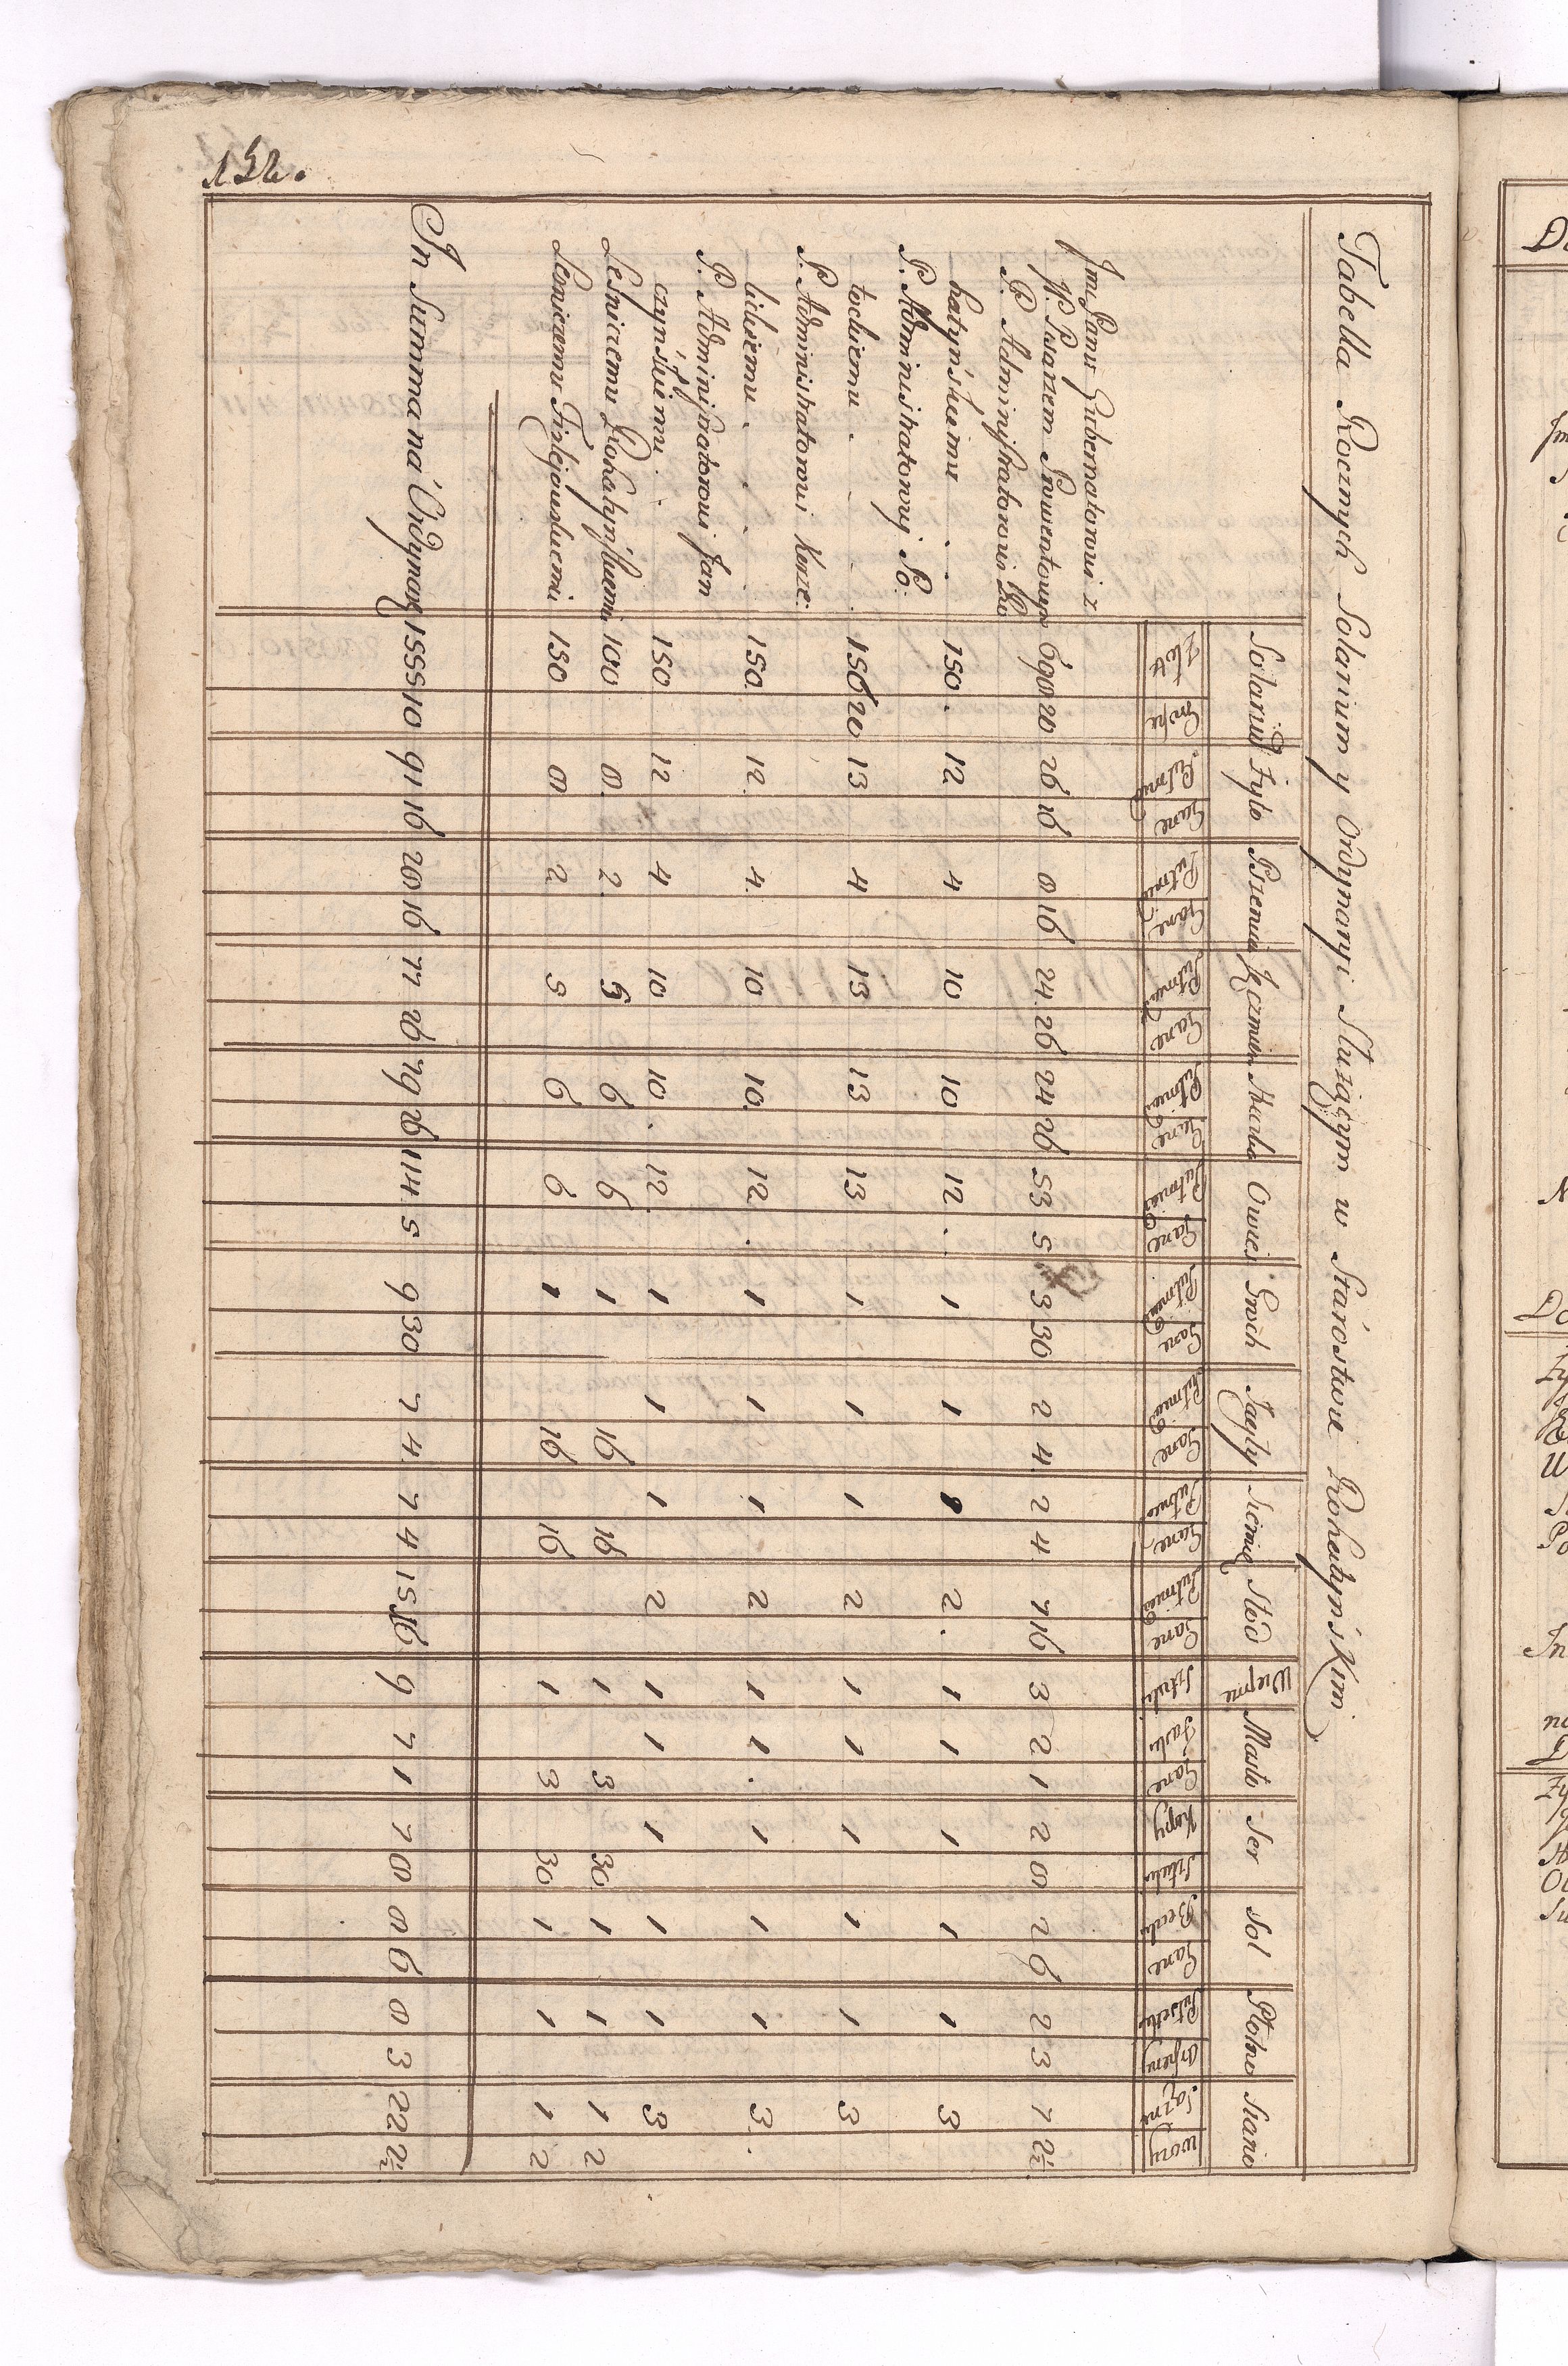 152.
Tabella Rocznych Solarium y Ordynaryi Służącym w Starostwie Rohatyńskim
Solariũ Żyto Pszenica Jęczmień Owies Groch Jagły Siemię Słód Wieprze Masło Ser Sol Płotno Siano
Złote Grosze Gane Gane Gane Gane Gane Gane Gane Gane Gane Sztuk Faski Gane Kopy Sztuk Beczki Gane Sążnie wozy
Jmć Panu Gubernatorowi z
W. Pisarzem Prowentowym 690 20 26 16 8 16 24 26 24 26 53 5 3 30 2 4 2 4 7 16 3 2 1 2 0 2 6 2 3 7 2½
P. Administratorowi Ro
hatyńskiemu 150 12 4 10 10 12 1 1 1 2 1 1 1 1 1 3
P. Administratorowi Po:
tockiemu 150 20 13 4 13 13 13 1 1 1 2 1 1 1 1 1 3
P. Administratorowi Korze:
lickiemu 150 12 4 10 10 12 1 1 1 2 1 1 1 1 1 3
P. Administratorowi Jan
czyńskiemu 150 12 4 10 10 12 1 1 1 2 1 1 1 1 1 3
Leśniczemu Rohatyńskiemu 100 8 2 5 6 6 1 16 16 1 3 30 1 1 1 2
Leśniczemu Firlejowskiemu 150 8 2 5 6 6 1 16 16 1 3 30 1 1 1 2
In Summa na Ordynaryą 1555 10 91 16 28 16 77 26 79 26 114 5 9 30 7 4 7 4 15 16 9 7 1 7 0 8 6 8 3 22 2½